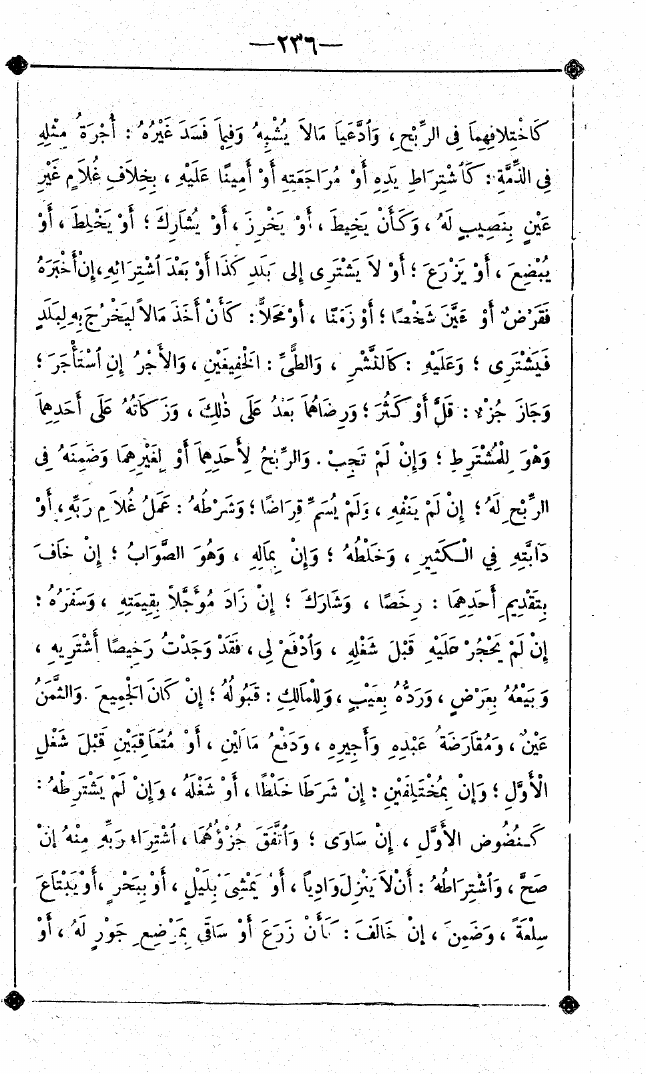 —٢٣٦—
كَاخْتِلافِهِمَا فِى الرِّبْحِ، وَادَّعَيَا مَالاَ يُشْبِهُ وَفِيمَا فَسَدَ غَيْرُهُ : أُجْرَةُ مِثْلِهِ
فِى الذِّمَّةِ : كَاشْتِرَاطِ يَدِهِ أَوْ مُرَاجَعَتِهِ أَوْ أَمِينًا عَلَيْهِ ، بِخِلاَفِ غُلاَمٍ غَيْرِ
عَيْنٍ بِنَصِيبٍ لَهُ ، وَكَأَنْ يَخِيطَ ، أَوْ يَخْرِزَ ، أَوْ يُشَارِكَ ؛ أَوْ يَخْلِطَ ، أَوْ
يُبْضِعَ ، أَوْ يَزْرَعَ ؛ أَوْ لاَ يَشْتَرِى إِلى بَلَدِ كَذَا أَوْ بَعْدَ اشْتِرَائِهِ، إِنْ أَخْبَرَهُ
فَقَرْضٌ أَوْ عَيَّنَ شَخْصًا ؛ أَوْ زَمَنًا ، أَوْ مَحَلاًّ : كَأَنْ أَخَذَ مَالاً لِيَخْرُجَ بِهِ لِبَلَدٍ
فَيَشْتَرِى ؛ وَعَلَيْهِ : كَالنَّشْرِ ، وَالطَّىِّ : الخَفِيفَيْنِ ، وَالأَجْرُ إِنِ اسْتَأْجَرَ ؛
وَجَازَ جُزْءٌ : قَلَّ أَوْ كَثُرَ ؛ وَرِضَاهُمَا بَعْدُ عَلَى ذٰلِكَ ، وَزَكَاتُهُ عَلَى أَحَدِهِمَا
وَهْوَ لِلْمُشْتَرِطِ ؛ وَإِنْ لَمْ تَجِبْ . وَالرِّبْحُ لِأَحَدِهِمَا أَوْ لِغَيْرِهِمَا وَضَمِنَهُ فِى
الرِّبْحِ لَهُ ؛ إِنْ لَمْ يَنْفِهِ ، وَلَمْ يُسَمِّ قِرَاضًا ؛ وَشَرْطُهُ : عَمَلُ غُلاَمِ رَبِّهِ ، أَوْ
دَابَّتِهِ فِي الْكَثِيرِ ، وَخَلْطُهُ ؛ وَإِنْ بِمَالِهِ ، وَهُوَ الصَّوَابُ ؛ إِنْ خَافَ
بِتَقْدِيمِ أَحَدِهِمَا : رِخَصًا ، وَشَارَكَ ؛ إِنْ زَادَ مُؤَجَّلاً بِقِيمَتِهِ ، وَسَفَرُهُ :
إِنْ لَمْ يَحْجُرْ عَلَيْهِ قَبْلَ شَغْلِهِ ، وَادْفَعْ لِى ، فَقَدْ وَجَدْتُ رَخِيصًا أَشْتَرِيهِ ،
وَبَيْعُهُ بِعَرْضٍ ، وَرَدُّهُ بِعَيْبٍ ، وَلِلْمَالِكِ : قَبُولُهُ ؛ إِنْ كَانَ الْجَمِيعَ . وَالثَّمَنُ
عَيْنٌ ، وَمُقَارَضَةُ عَبْدِهِ وَأَجِيرِهِ ، وَدَفْعُ مَالَيْنِ ، أَوْ مُتَعَاقِبَيْنِ قَبْلَ شَغْلِ
الْأَوَّلِ ؛ وَإِنْ بِمُخْتَلِفَيْنِ : إِنْ شَرَطَا خَلْطًا ، أَوْ شَغَلَهُ ، وَإِنْ لَمْ يَشْتَرِطْهُ :
كَنُضُوضِ الأَوَّلِ ، إِنْ سَاوَى ؛ وَاتَّفَقَ جُزْؤُهُمَا ، اشْتِرَاءُ رَبِّهِ مِنْهُ إِنْ
صَحَّ ، وَاشْتِرَاطُهُ : أَنْ لاَ يَنْزِلَ وَادِياً ، أَوْ يَمْشِىَ بِلَيْلٍ ، أَوْ بِبَحْرٍ ، أَوْ يَبْتَاعَ
سِلْعَةً ، وَضَمِنَ ، إِنْ خَالَفَ : كَأَنْ زَرَعَ أَوْ سَاقَى بِمَوْضِعِ جَوْرٍ لَهُ ، أَوْ